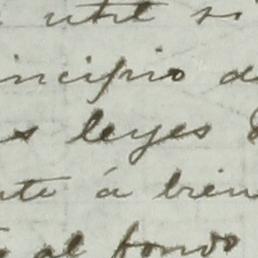 util si
incipio d
s leyes
nte á bien
al fondo